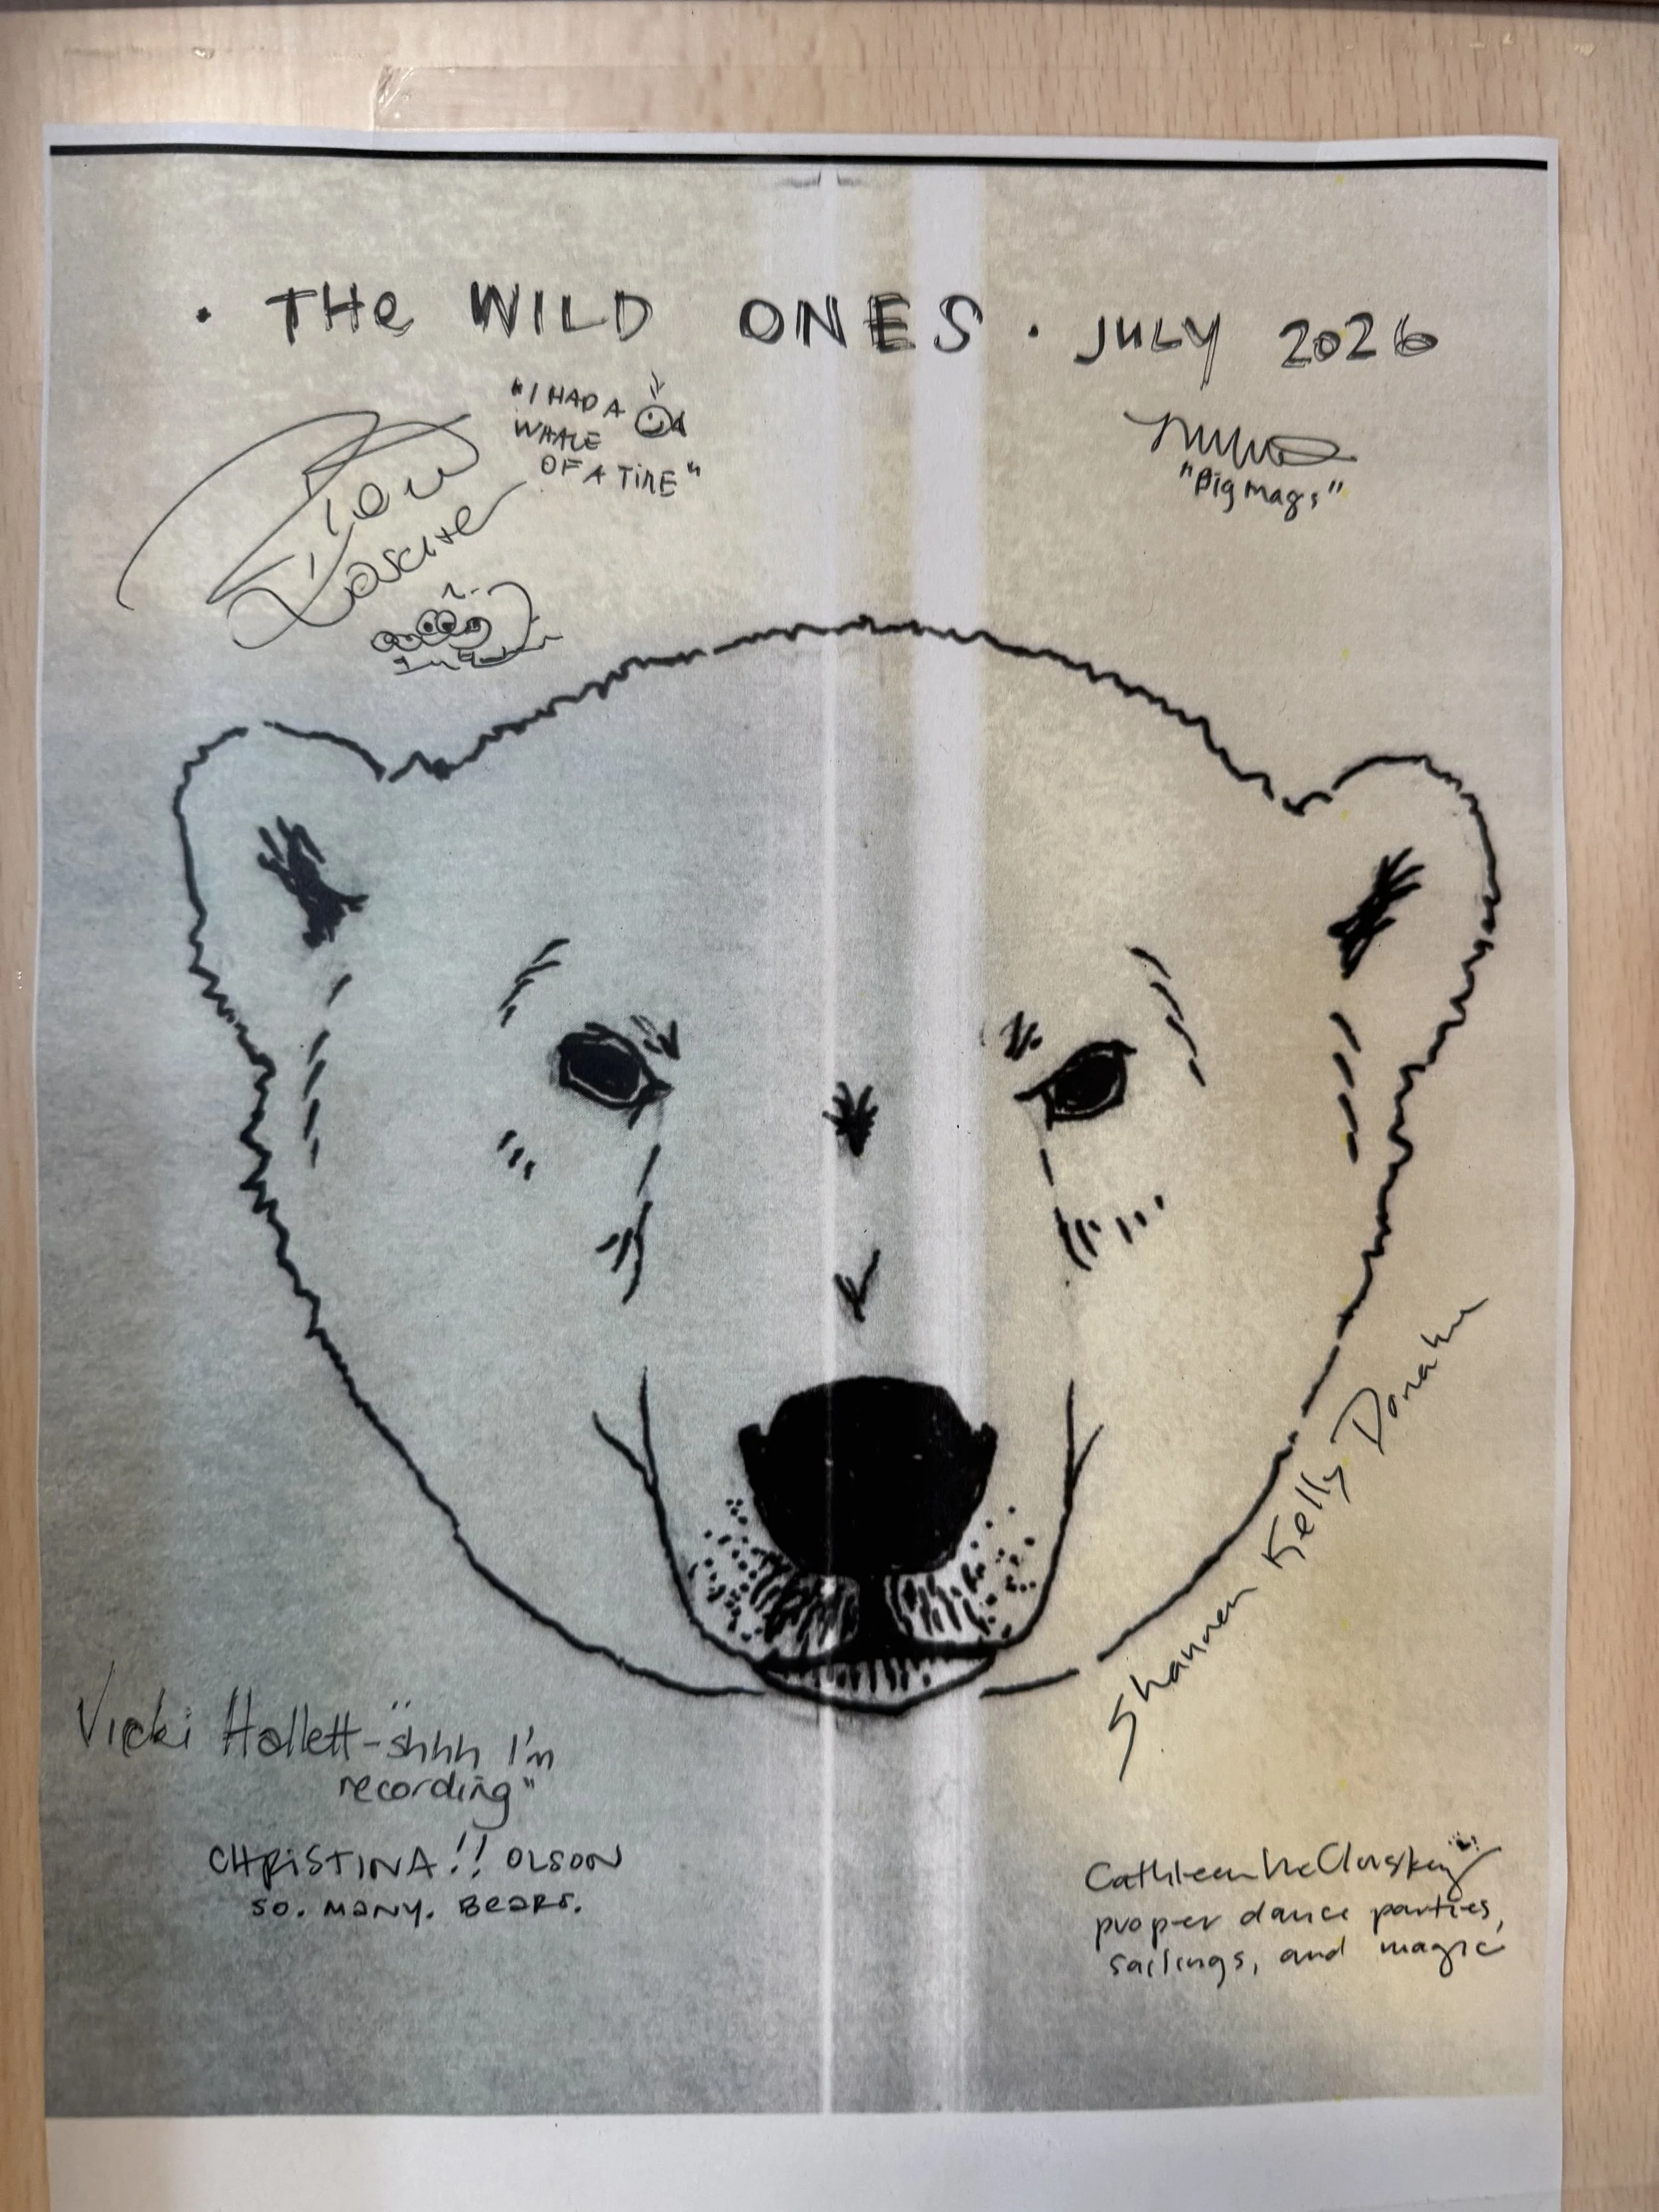 · THe WILD ONES · JULY 2026
"I HAD A
WHALE
OF A TIME"
"Big Mags"
Shannon Kelly Donahue
Vicki Hallett - "shhh I'm
recording"
CHRISTINA!! OLSON
SO. MANY. BEARS.
Cathleen McCluskey
proper dance parties,
sailings, and magic